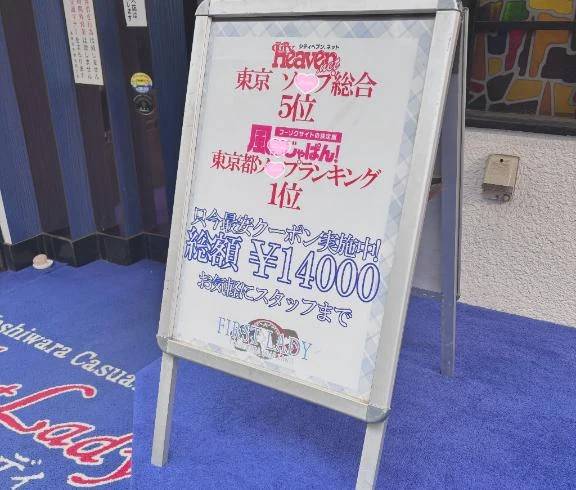 シティヘブンネット
City Heaven net
東京 ソ プ総合
5位
フーゾクサイトの決定版
風 じゃぱん!
東京都ソ プランキング
1位
只今最安クーポン実施中!
総額 ¥14000
お気軽にスタッフまで
FIRST LADY
shiwara Casua
st Lady
ディ